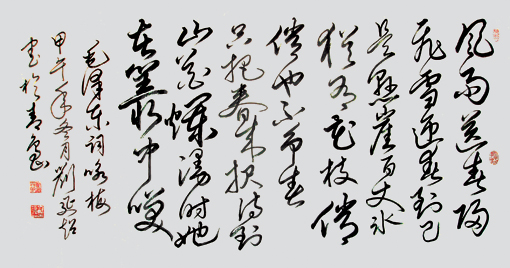 风雨送春归
飞雪迎春到已
是悬崖百丈冰
犹有花枝俏
俏也不争春
只把春来报待到
山花烂漫时她
在丛中笑
毛泽东词咏梅
甲午年冬月劉延
书于青岛